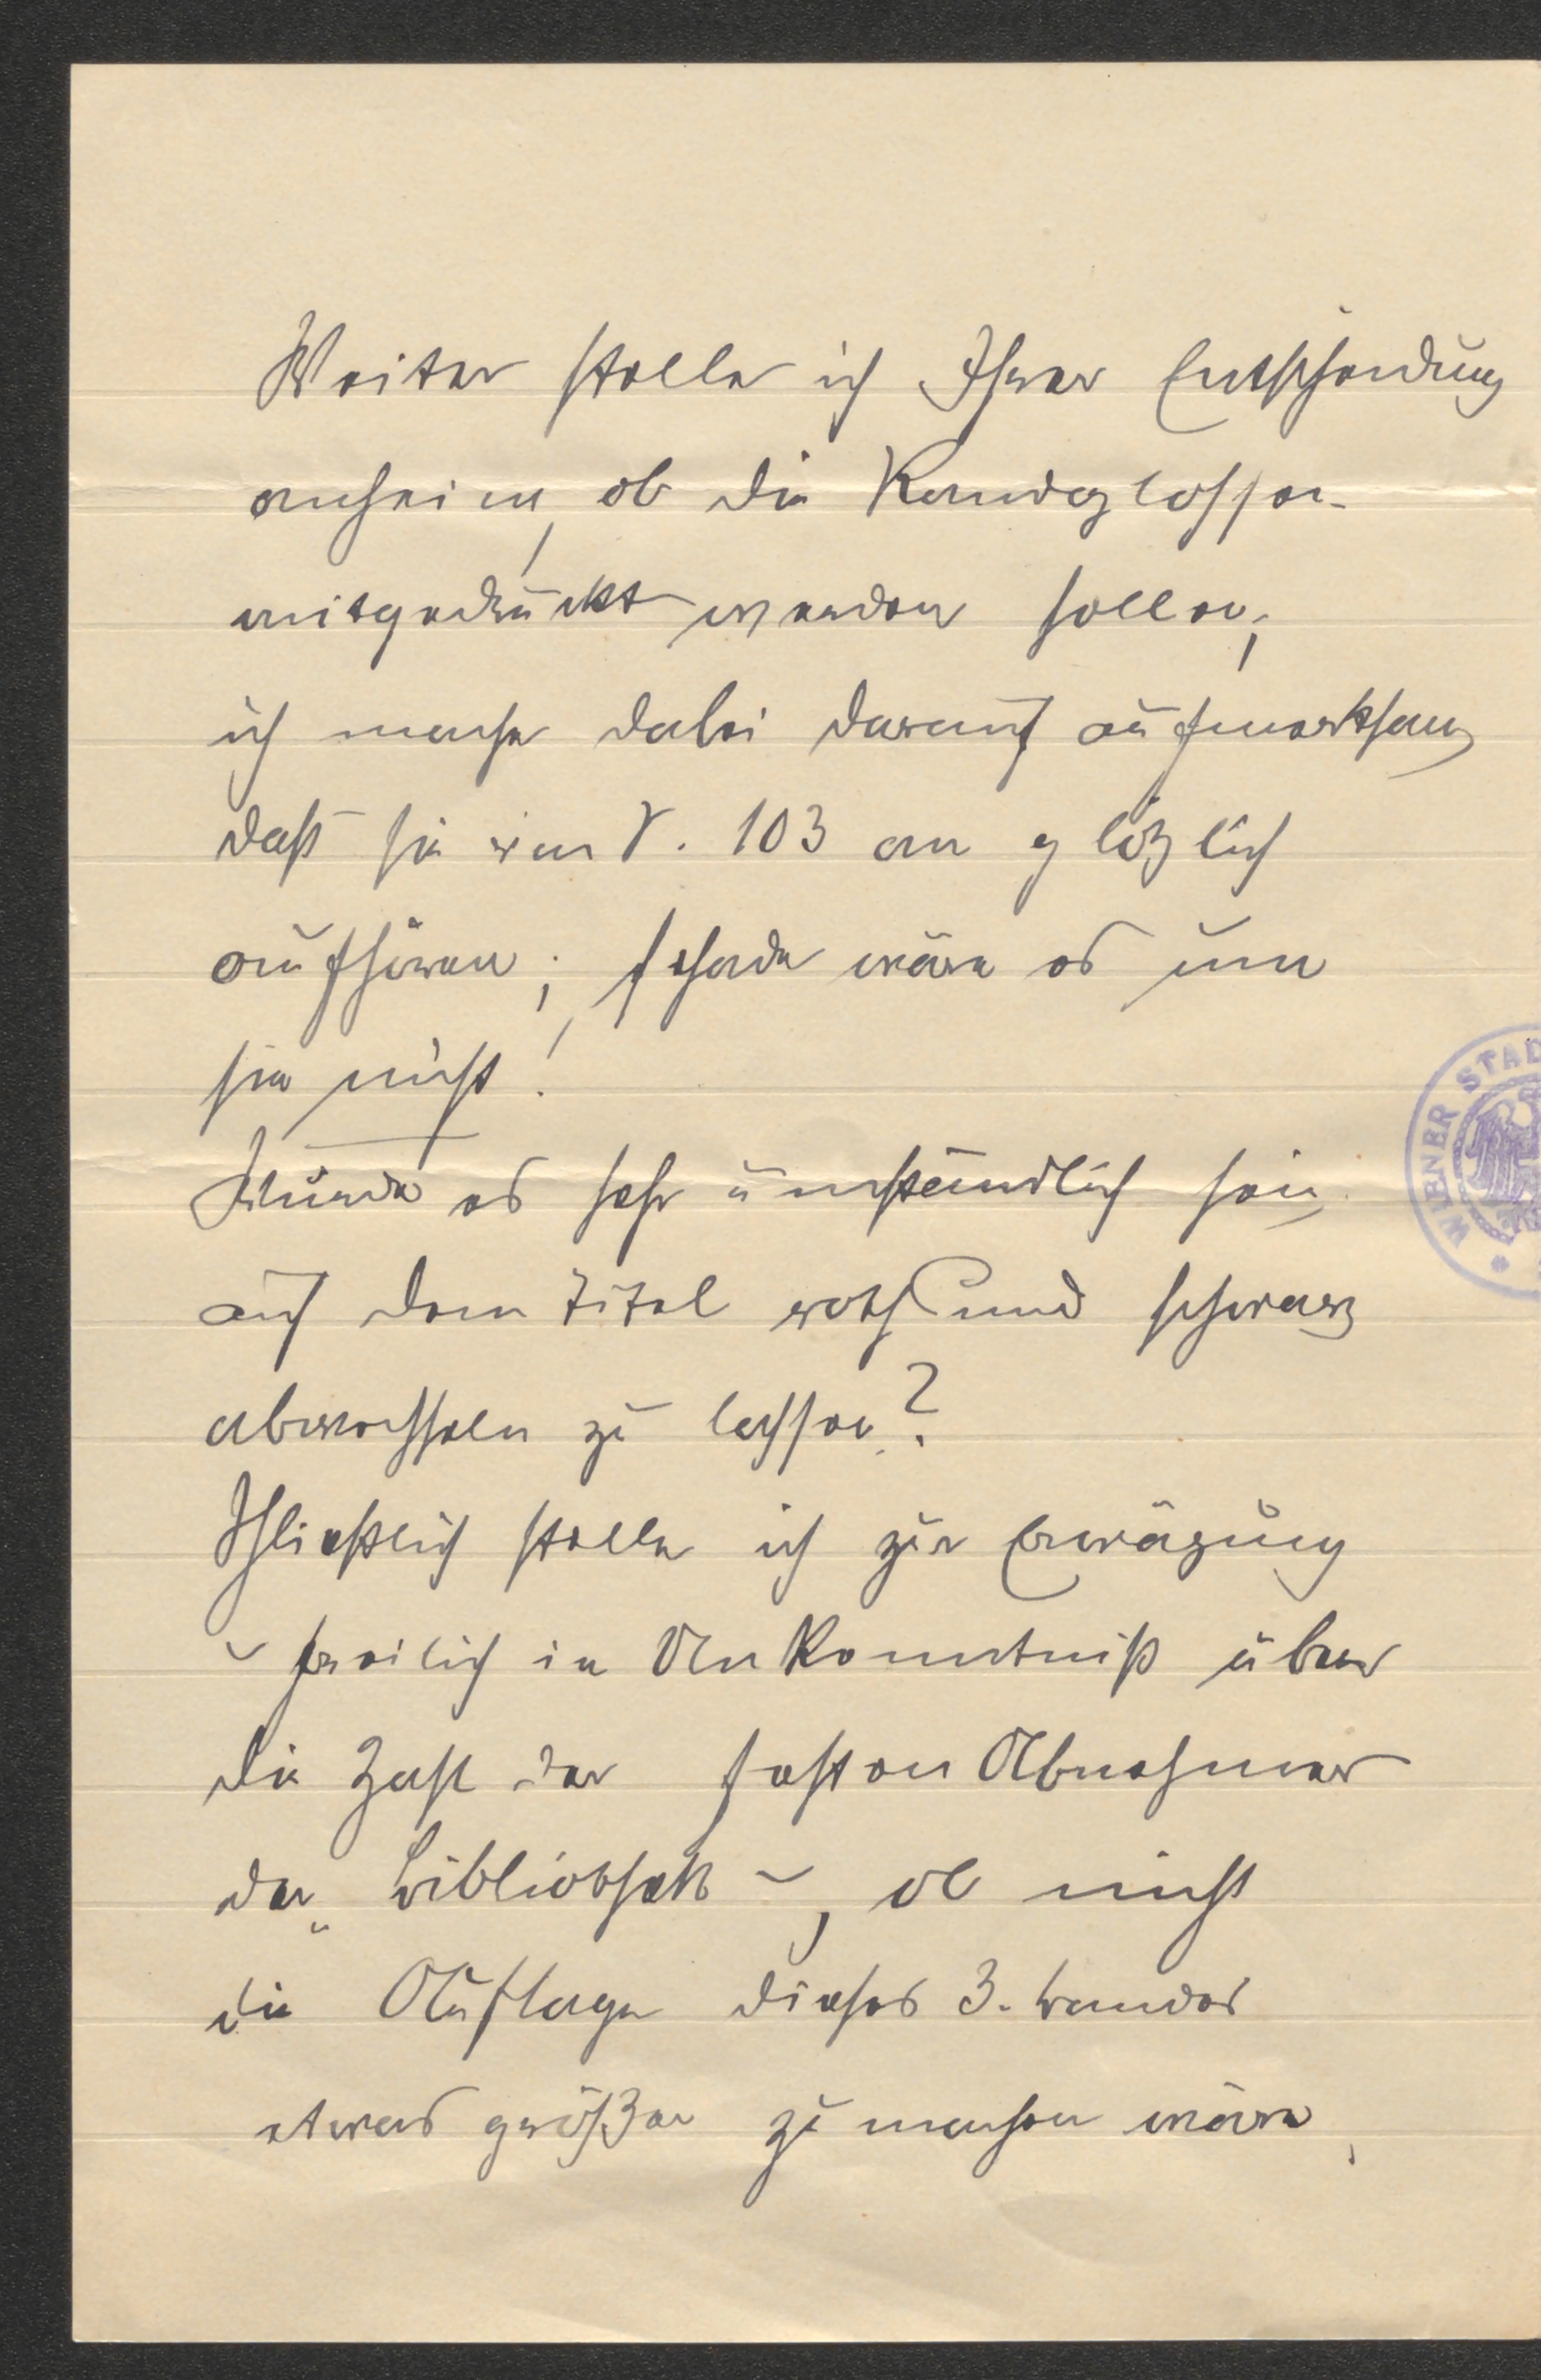 Weiter stelle ich Ihrer Entscheidung
anheim, ob die Randglossen
mitgedruckt werden sollen;
ich mache dabei darauf aufmerksam,
daß sie von S. 103 an plötzlich
aufhören; schade wäre es um
sie nicht!
Würde es sehr umständlich sein,
auf dem Titel roth und schwarz
abwechseln zu lassen?
Schließlich stelle ich zur Erwägung
– freilich in Unkenntniß über
die Zahl der festen Abnehmer
der Bibliothek –, ob nicht
die Auflage dieses 3. Bandes
etwas größer zu machen wäre,
WIENER STAD